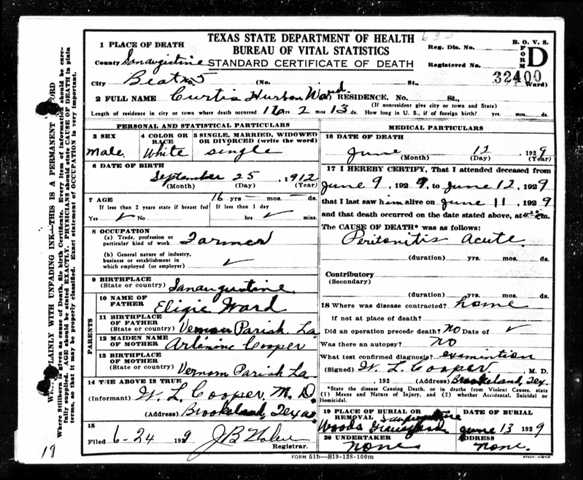 TEXAS STATE DEPARTMENT OF HEALTH
BUREAU OF VITAL STATISTICS
STANDARD CERTIFICATE OF DEATH
B. O. V. S.
FORM D
Reg. Dis. No.
Registered No.
32400
1 PLACE OF DEATH
County Sanaugustine
City Beat No 5 (No. St., Ward)
2 FULL NAME Curtis Hurson Ward RESIDENCE, No. St.,
(If nonresident give city or town and State)
Length of residence in city or town where death occurred 16 yrs. 2 mos. 13 ds. How long in U. S., if of foreign birth? yrs. mos. ds.
PERSONAL AND STATISTICAL PARTICULARS
3 SEX
male
4 COLOR OR RACE
White
5 SINGLE, MARRIED, WIDOWED OR DIVORCED (write the word)
single
6 DATE OF BIRTH
September 25, 1912
(Month) (Day) (Year)
7 AGE 16 yrs. mos. ds.
If less than 2 years state if breast fed If less than 1 day
Yes No hrs. mins.
8 OCCUPATION
(a) Trade, profession or particular kind of work Farmer
(b) General nature of industry, business or establishment in which employed (or employer)
9 BIRTHPLACE
(State or country) Sanaugustine
PARENTS
10 NAME OF FATHER Ward
11 BIRTHPLACE OF FATHER
(State or country) Vernon Parish La
12 MAIDEN NAME OF MOTHER Cooper
13 BIRTHPLACE OF MOTHER
(State or country) Vernon Parish La.
14 THE ABOVE IS TRUE
(Informant) W. L. Cooper M. D.
(Address) Brookeland, Texas
15
Filed 6-24 1929 Registrar.
MEDICAL PARTICULARS
16 DATE OF DEATH
June 12 1929
(Month) (Day) (Year)
17 I HEREBY CERTIFY, That I attended deceased
from June 9, 1929, to June 12, 1929
that I last saw him alive on June 11 1929
and that death occurred on the date stated above, at m.
The CAUSE OF DEATH* was as follows:
Peritonitis Acute
(duration) yrs. mos. ds.
Contributory
(Secondary)
(duration) yrs. mos. ds.
18 Where was disease contracted? home
if not at place of death?
Did an operation precede death? No Date of
Was there an autopsy? no
What test confirmed diagnosis?
(Signed) W. L. Cooper, M. D.
, 192 (Address) Brookeland, Tex.
*State the disease Causing Death, or in deaths from Violent Causes, state (1) Means and Nature of Injury, and (2) whether Accidental, Suicidal or homicidal.
19 PLACE OF BURIAL OR REMOVAL
Woods
DATE OF BURIAL
June 13 1929
20 UNDERTAKER
none
ADDRESS
none.
FORM 51b-819-128-100m